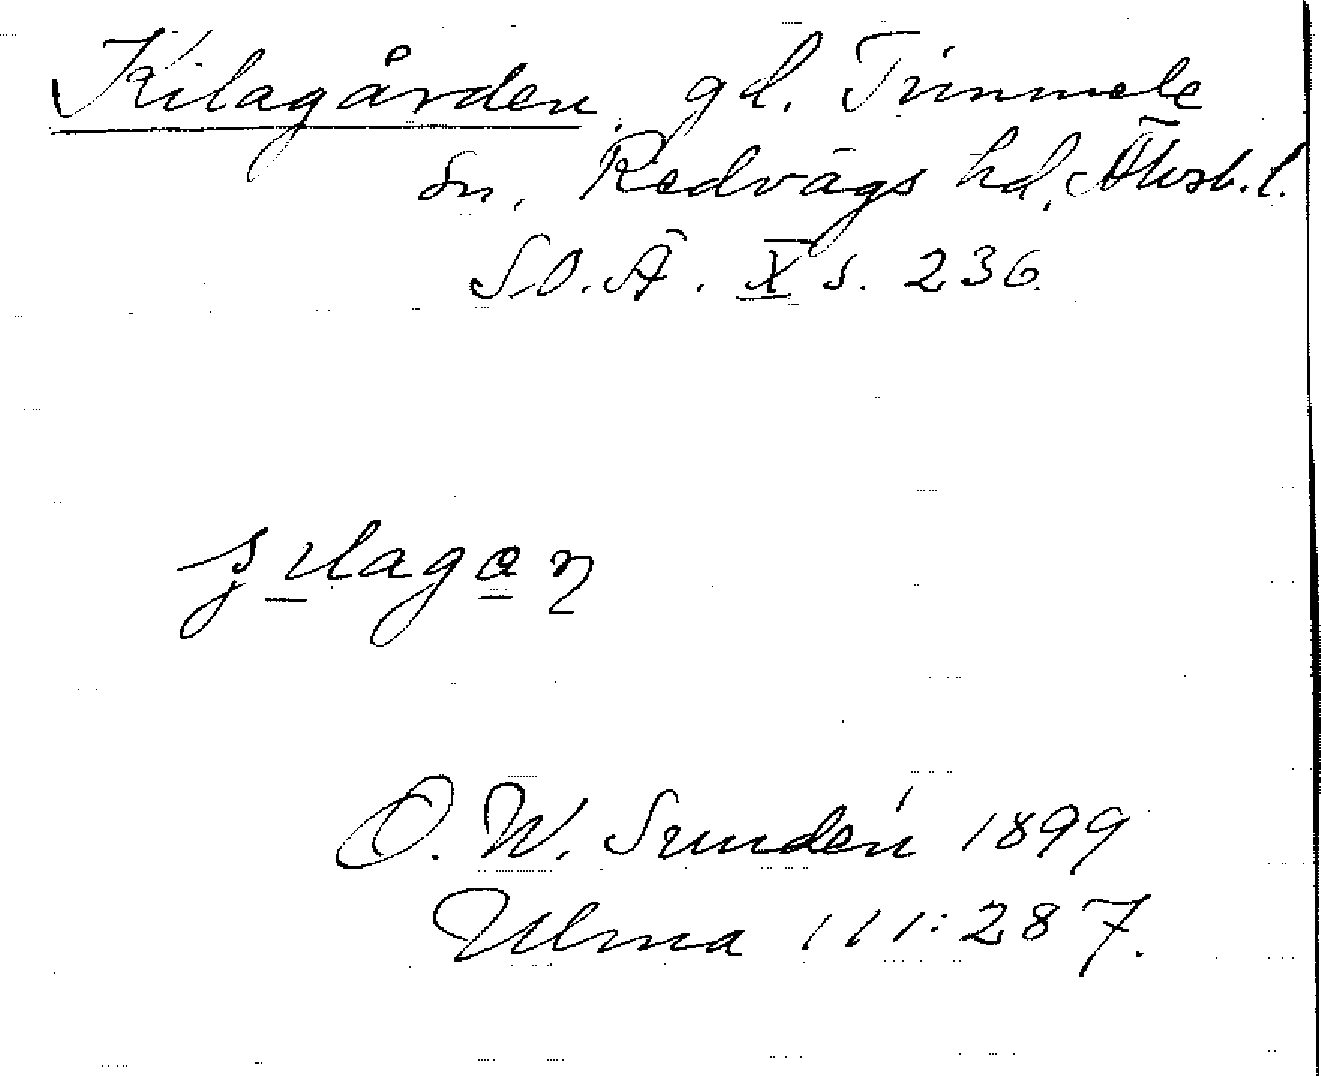 Kilagården gd. Timmele
sn, Redvägs hd, Älvsb. l.
S.O.Ä. X s. 236.
O. W. Sundén 1899
Ulma 111:287.